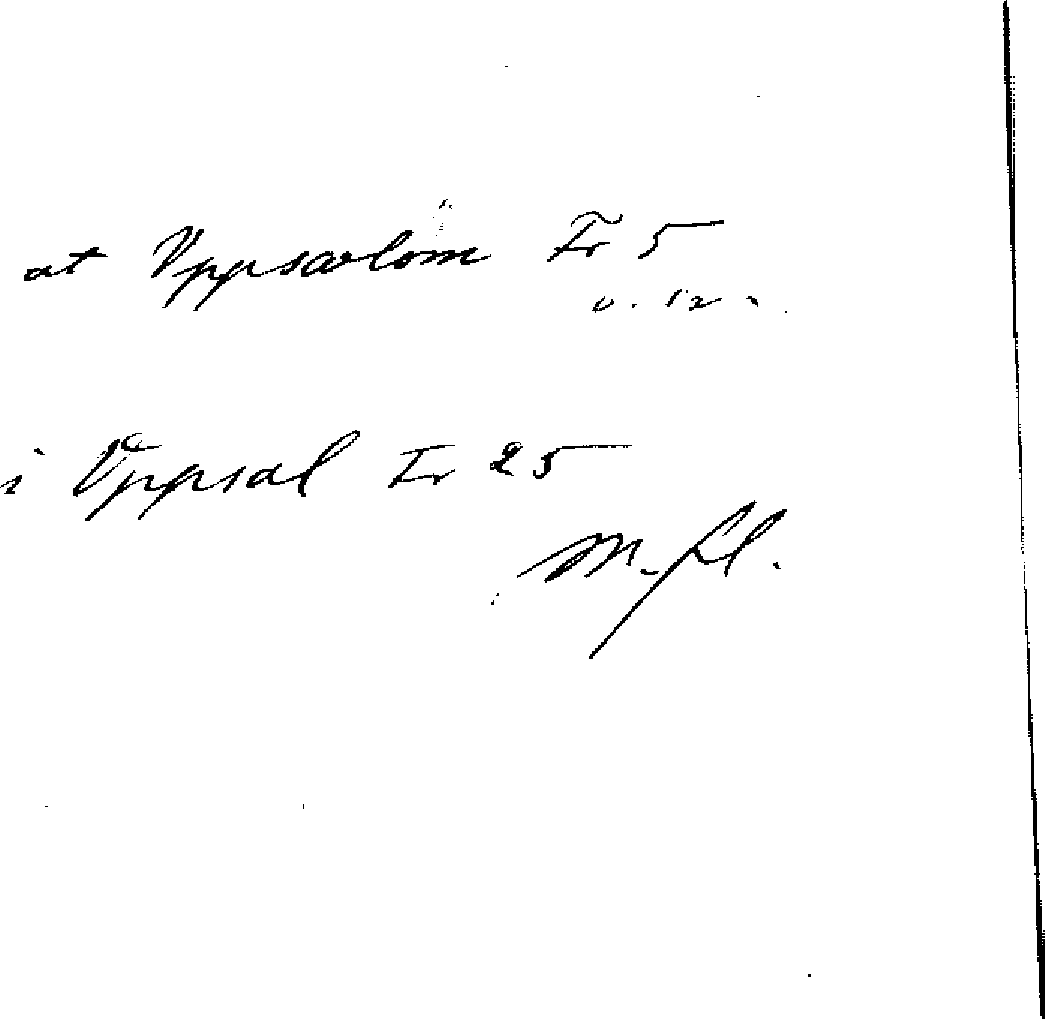 at Vppsalom Fr 5
o. 12
i Vppsal Fr 25
M. fl.